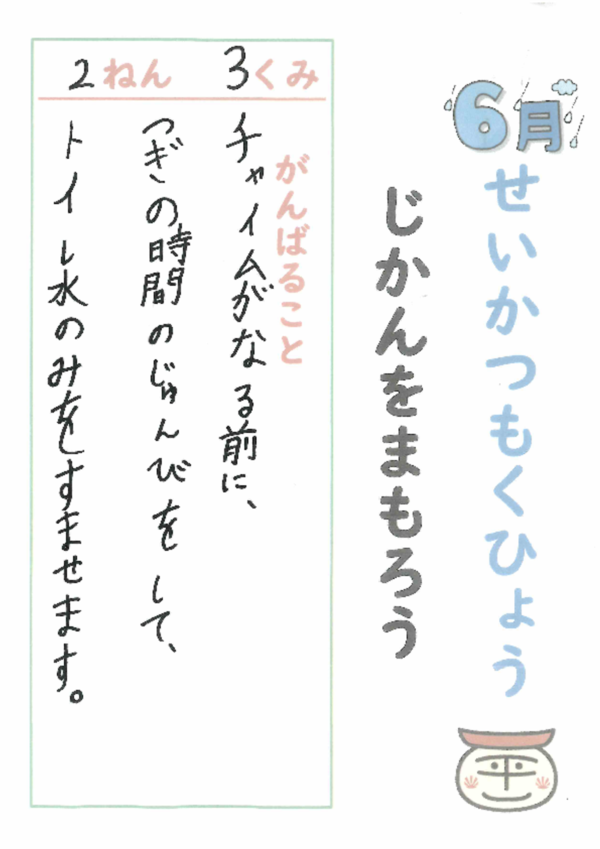 6月
せいかつもくひょう
じかんをまもろう
2ねん 3くみ
がんばること
チャイムがなる前に、
つぎの時間のじゅんびをして、
トイレ水のみをすませます。